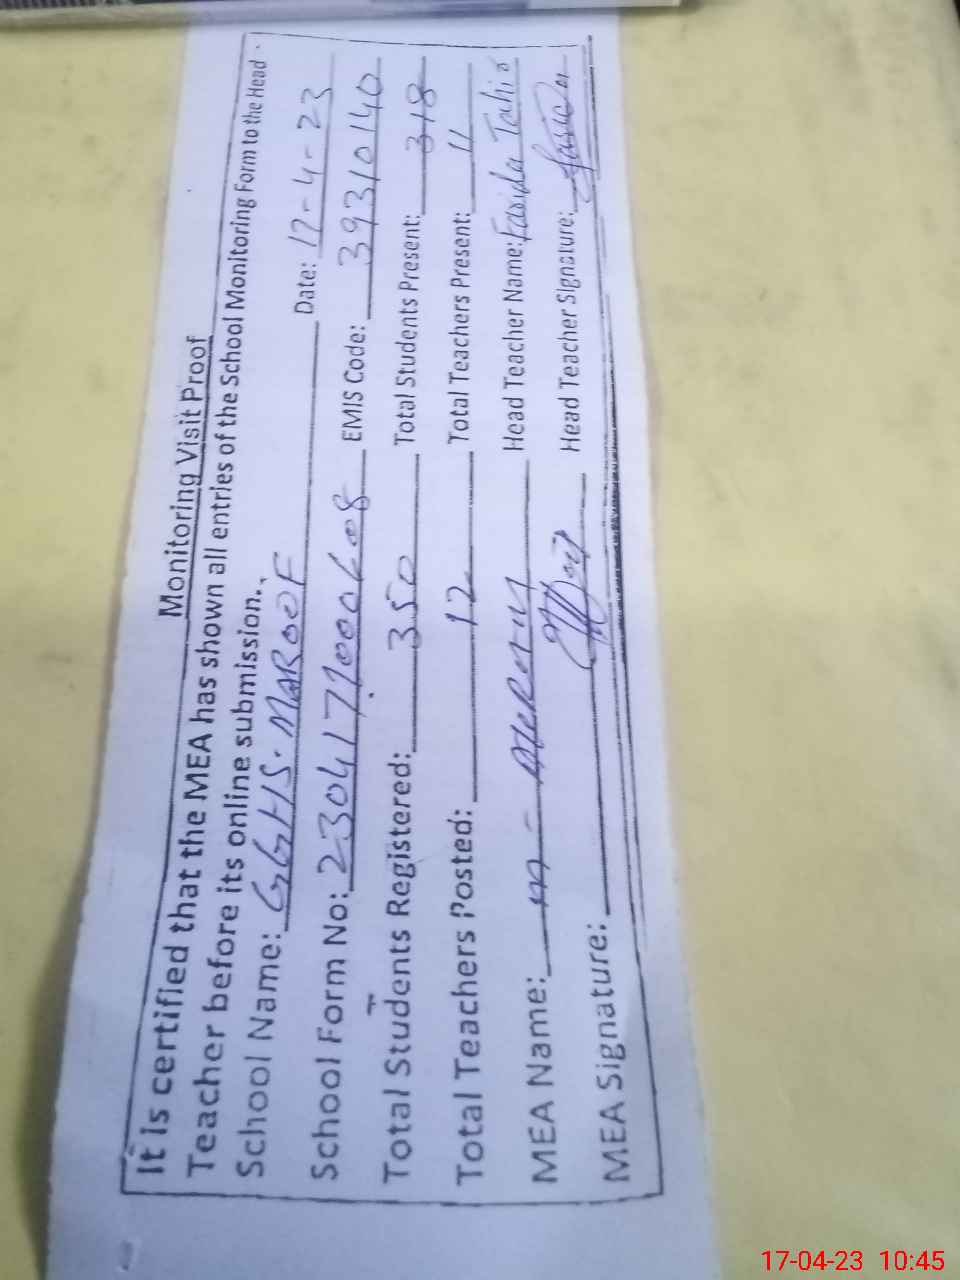 Monitoring Visit Proof
It is certified that the MEA has shown all entries of the School Monitoring Form to the Head
Teacher before its online submission..
School Name: GGHS. MAROOF Date: 17-4-23
School Form No: 2304171000608 EMIS Code: 39310140
Total Students Registered: 350 Total Students Present: 318
Total Teachers Posted: 12 Total Teachers Present: 11
MEA Name: M- AKRAM Head Teacher Name: Farida Tahir
MEA Signature: Head Teacher Signature: Farida
17-04-23 10:45